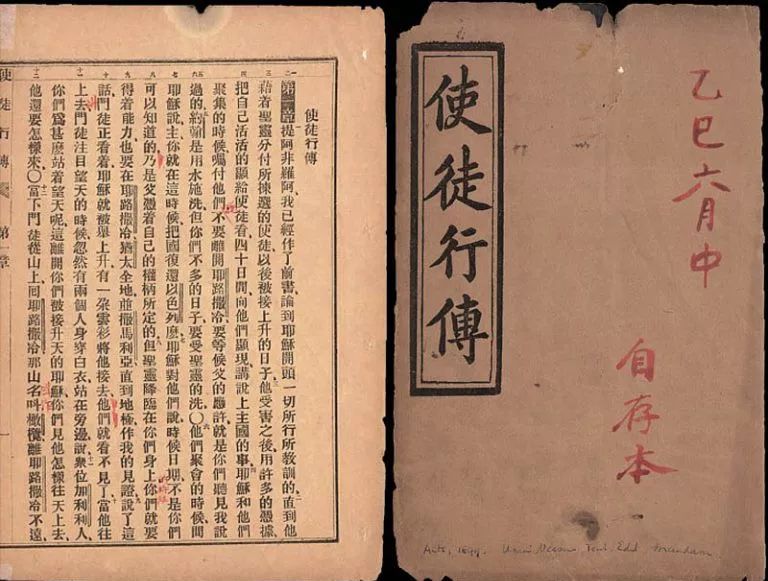 乙巳六月中
自存本
使徒行傳
使徒行傳
第一章提阿非羅阿、我已經作了前書、論到耶穌開頭一切所行所教訓的、直到他
藉着聖靈分付所揀選的使徒、以後被接上升的日子、他受害之後、用許多的憑據
把自己活活的顯給使徒看、四十日間向他們顯現、講說上主國的事、耶穌和他們
聚集的時候、囑付他們不要離開耶路撒冷、要等候父的應許、就是你們聽見我說
過的、約翰是用水施洗、但你們不多的日子、要受聖靈的洗○他們聚會的時候、問
耶穌說、主你就在這時候把國復還以色列麽、耶穌對他們說、時候日期、不是你們
可以知道的、乃是父憑着自己的權柄所定的、但聖靈降臨在你們身上、你們就要
得着能力、也要在耶路撒冷猶太全地、並撒馬利亞、直到地極、作我的見證、說了這
話、門徒正看着、耶穌就被舉上升、有一朶雲彩將他接去、他們就看不見了、當他往
上去、門徒注目望天的時候、忽然有兩個人、身穿白衣、站在旁邊說、衆位加利利人、
你們爲甚麽站着望天呢、這離開你們被接升天的耶穌、你們見他怎樣往天上去、
他還要怎樣來○當下門徒從山上回耶路撒冷、那山名叫橄欖、離耶路撒冷不遠
使徒行傳 第一章 一